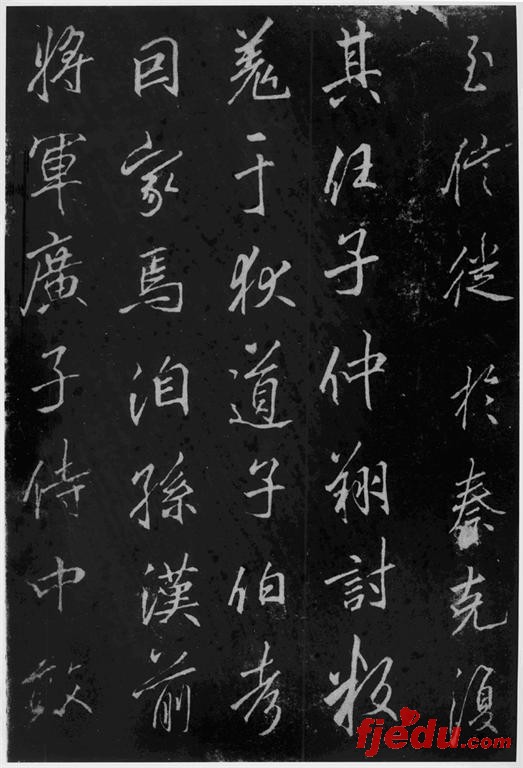 至信徙於秦克復
其任子仲翔討叛
羌于狄道子伯考
因家焉洎孫漢前
將軍廣子侍中敢
fjedu.com